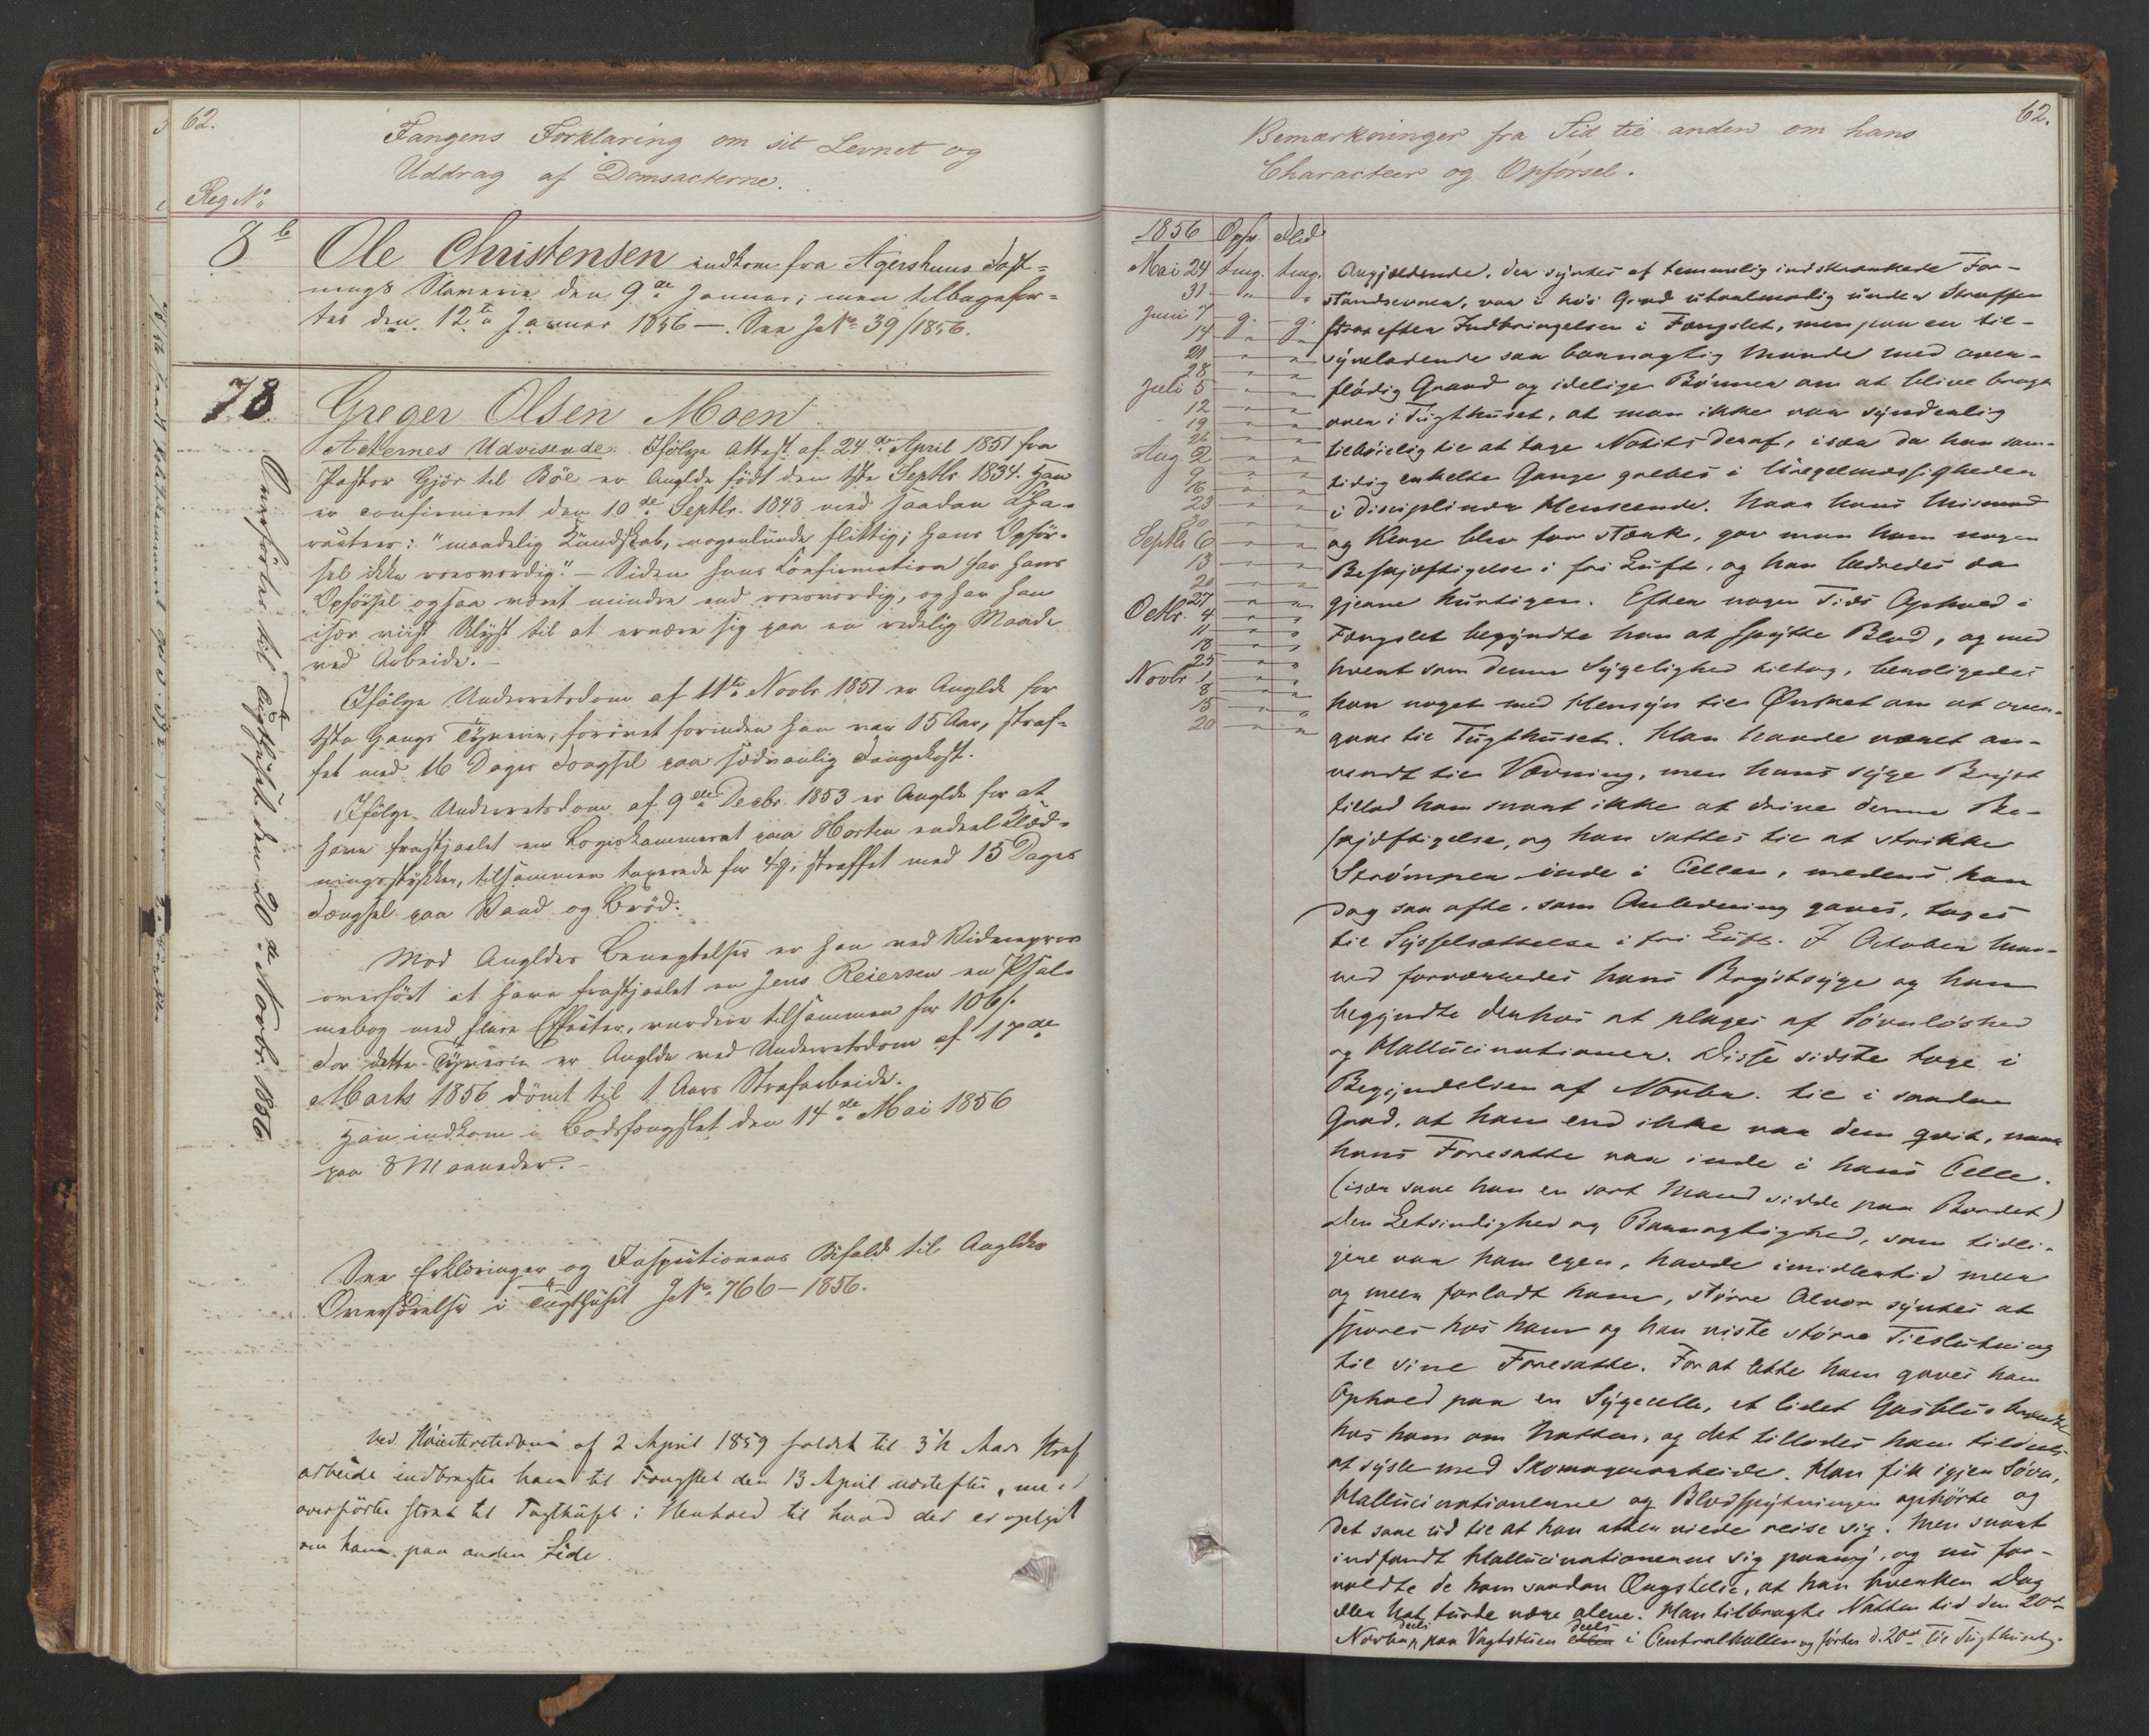 62.
Fangens Forklaring om sit Levnet og
Uddrag af Domsacterne.
Reg No
8 b
Ole Christensen indkom fra Agershuus Fæst=
nings Slaverie den 9de Januar; men tilbageför=
tes den 12te Januar 1856 —. See J No 39/1856.
78.
Greger Olsen Moen
Acternes Udvisende. Ifölge Attest af 24de April 1851 fra
Pastor Gjör til Böe er Anglde födt den 1ste Septbr 1834. Han
er confirmeret den 10de Septbr. 1848 med saadan Cha-
racteer: "maadelig Kundskab, nogenlunde flittig; hans Opför-
sel ikke roesværdig." — Siden hans Confirmation har hans
Opförsel ogsaa været mindre end roesværdig, og har han
især viist Ulyst til at ernære sig paa en redelig Maade
ved Arbeide. —
Ifölge Underretsdom af 11te Novbr 1851 er Anglde for
1ste Gangs Tyverie, forövet forinden han var 15 Aar, straf-
fet med 16 Dages Fængsel paa sædvanlig Fangekost.
Ifölge Underretsdom af 9de Decbr. 1853 er Anglde for at
have frastjaalet en Logiskammerat paa Horten endeel Klæd-
ningsstykker, tilsammen taxerede for straffet med 15 Dages
Fængsel paa Vand og Bröd.
Mod Angldes Benægtelse er han ved Vidneprov
overfört at have frastjaalet en Jens Reiersen en Psal-
mebog med flere Effecter, værdie tilsammen for 106 s.
For dette Tyverie er Anglde ved Underretsdom af 17de
Marts 1856 dömt til 1 Aars Strafarbeide.
Han indkom i Bodsfængslet den 14de Mai 1856
paa 8 Maaneder. —
See Erklæringer og Inspectionens Befaling til Angldes
Overförelse i Tugthuset J No 766 — 1856.
Ved Höiesteretsdom af 2 April 1859 fældet til 3½ Aars Straf
arbeide indbragtes han til Fængslet den 13 April næstefter, men
overförtes strax til Tugthuset i Henhold til hvad der er oplyst
om ham paa anden Side.
Overförtes til Tugthuset den 20de Novbr. 1856
62.
Bemærkninger fra Tid til anden om hans
Characteer og Opförsel.
1856 Opf. Flid
Mai 24 temg. temg.
31 " "
Juni 7 g. g.
14 " "
21 " "
28 " "
Juli 5 " "
12 " "
19 " "
26 " "
Aug 2 " "
9 " "
16 " "
23 " "
30 " "
Septbr 6 " "
13 " "
20 " "
27 " "
Octbr. 4 " "
11 " "
18 " "
25 " "
Novbr 1 " "
8 " "
15 " "
20 " "
Angjældende, der syntes af temmelig indskrænkede For-
standsevner, var i höi Grad utaalmodig under Straffen
strax efter Indbringelsen i Fængslet, men paa en til-
syneladende saa barnagtig Maade med over-
flödig Graad og idelige Bönner om at blive bragt
over i Tugthuset, at man ikke var synderlig
tilböielig til at tage Notits deraf, især da han sam-
tidig enkelte Gange grebes i Uregelmæssigheder
i disciplinær Henseende. Naar hans Mismod
og Klage blev for stærk, gav man ham nogen
Beskjæftigelse i fri Luft, og han bedredes da
gjerne hurtigen. Efter nogen Tids Ophold i
Fængslet begyndte han at spytte Blod, og med
hvert som denne Sygelighed tiltog, beroligedes
han noget med Hensyn til Önsket om at over-
gaae til Tugthuset. Han havde været an-
vendt til Vævning, men hans syge Bryst
tillod ham snart ikke at drive denne Be-
skjæftigelse, og han sattes til at strikke
Strömper inde i Cellen, medens han
dog saa ofte, som Anledning gaves, toges
til Sysselsættelse i fri Luft. I October Maa-
ned forværredes hans Brystsyge og han
begyndte derhos at plages af Sövnlöshed
og Hallucinationer. Disse sidste toge i
Begyndelsen af Novbr. til i saadan
Grad, at han end ikke var dem qvit, naar
hans Foresatte var inde i hans Celle.
(især saae han en sort Mand sidde paa Bordet)
Den Letsindighed og Barnagtighed, som tidli-
gere var ham egen, havde imidlertid meer
og meer forladt ham, större Alvor syntes at
spores hos ham og han viste större Tilslutning
til sine Foresatte. For at lette ham gaves ham
Ophold paa en Sygecelle, et lidet Gasblus brændte
hos ham om Natten, og det tillodes ham tildeels
at sysle med Skomagerarbeide. Han fik igjen Sövn,
Hallucinationerne og Blodspytningen ophörte og
det saae ud til at han atter vilde reise sig. Men snart
indfandt Hallucinationerne sig paany, og nu for-
voldte de ham saadan Ængstelse, at han hverken Dag
eller Nat turde være alene. Han tilbragte Natten til den 20de
Novbr deels paa Vagtstuen deels i Centralhallen og förtes d. 20de til Tugthuset.